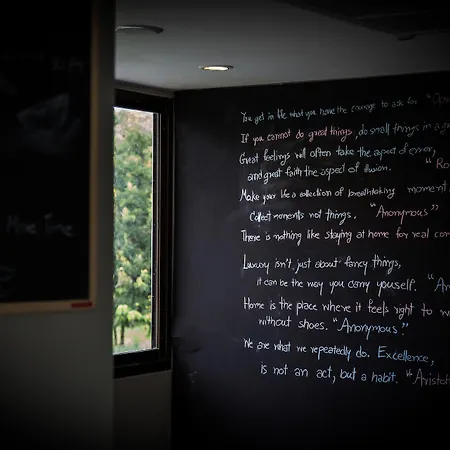 Wine Time
You get in life what you have the courage to ask for "Op
If you cannot do great things, do small things in a g
Great feelings will often take the aspect of error,
and great faith the aspect of illusion. "Ro
Make your life a collection of breathtaking moment
Collect moments not things. "Anonymous"
There is nothing like staying at home for real com
Luxury isn't just about fancy things,
it can be the way you carry youself. "An
Home is the place where it feels right to w
without shoes. "Anonymous."
We are what we repeatedly do. Excellence,
is not an act, but a habit. "Aristot